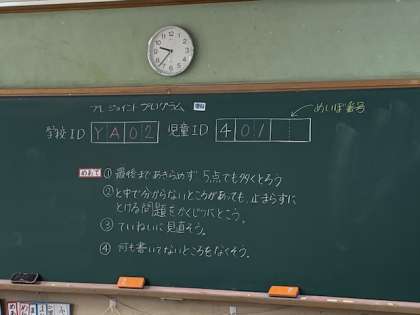 プレジョイントプログラム
めいぼ番号
学校ID YA02 児童ID 401
めあて ①最後まであきらめず 5点でも多くとろう
②と中で分からないところがあっても、止まらずに
とける問題をかくじつにとこう。
③ていねいに見直そう。
④何も書いてないところをなくそう。